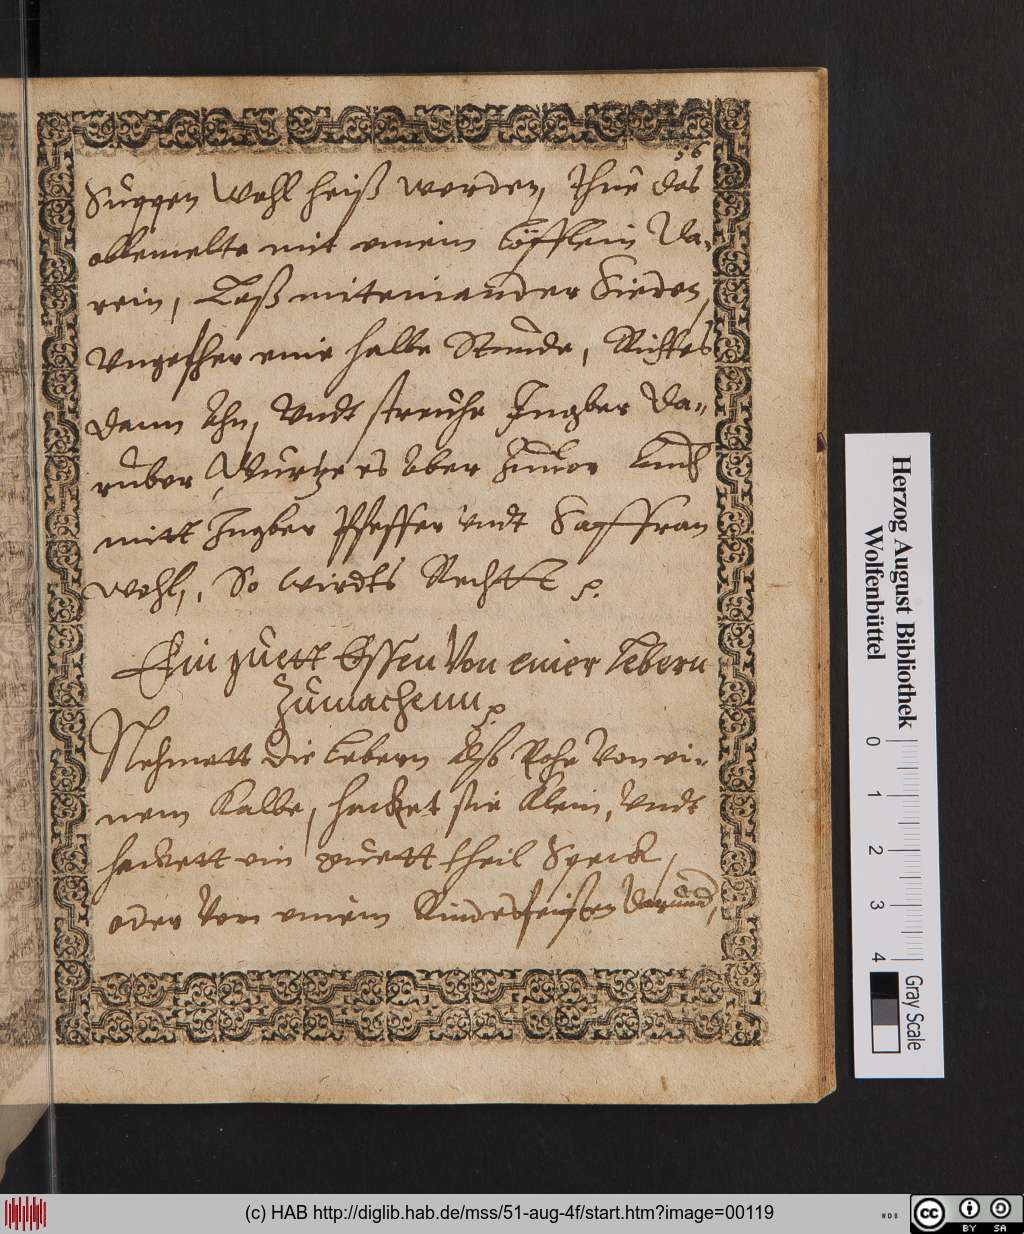 56
Suppen Wohl heiß worden, Thue das
obbemelte mit einem löfflein Da-
rein, Laß miteinander Sieden,
Vngefher eine halbe Stunde, Richtes
dann Ahn, Undt streuhe Ingber Da-
rüber, Würtze es Aber Zuuor auch
mitt Ingber Pfeffer Undt Saffran
wohl, So wirdts Rechtt
Ein guett Essen Von einer lebern
Zumachenn
Nehmett die lebern Also Rohe Von ei-
nem Kalbe, hacket sie klein, Undt
hackett ein guett theil Speck,
oder Von einem Rindesfeisten Darund,
Herzog August Bibliothek
Wolfenbüttel
0 1 2 3 4
Gray Scale
(c) HAB http://diglib.hab.de/mss/51-aug-4f/start.htm?image=00119
WDB
cc BY SA